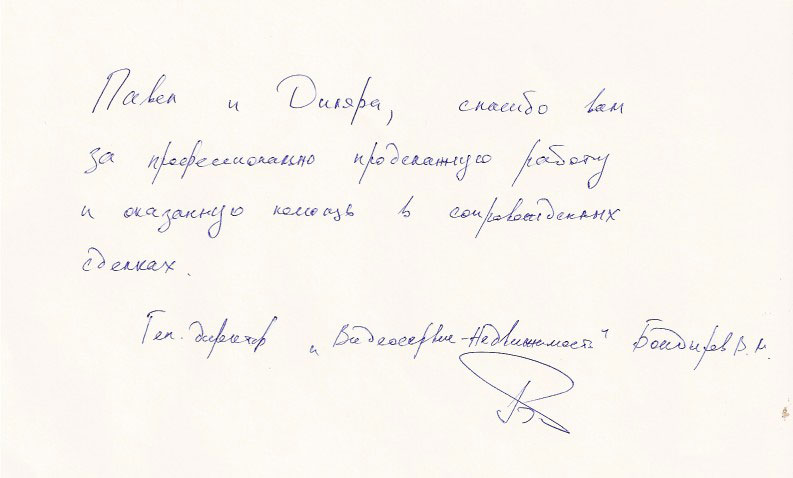 Павел и Диляра, спасибо вам
за профессионально проделанную работу
и оказанную помощь в сопровожденных
сделках.
Ген. директор "Видеосервис-Недвижимость" Бондырев В.Н.